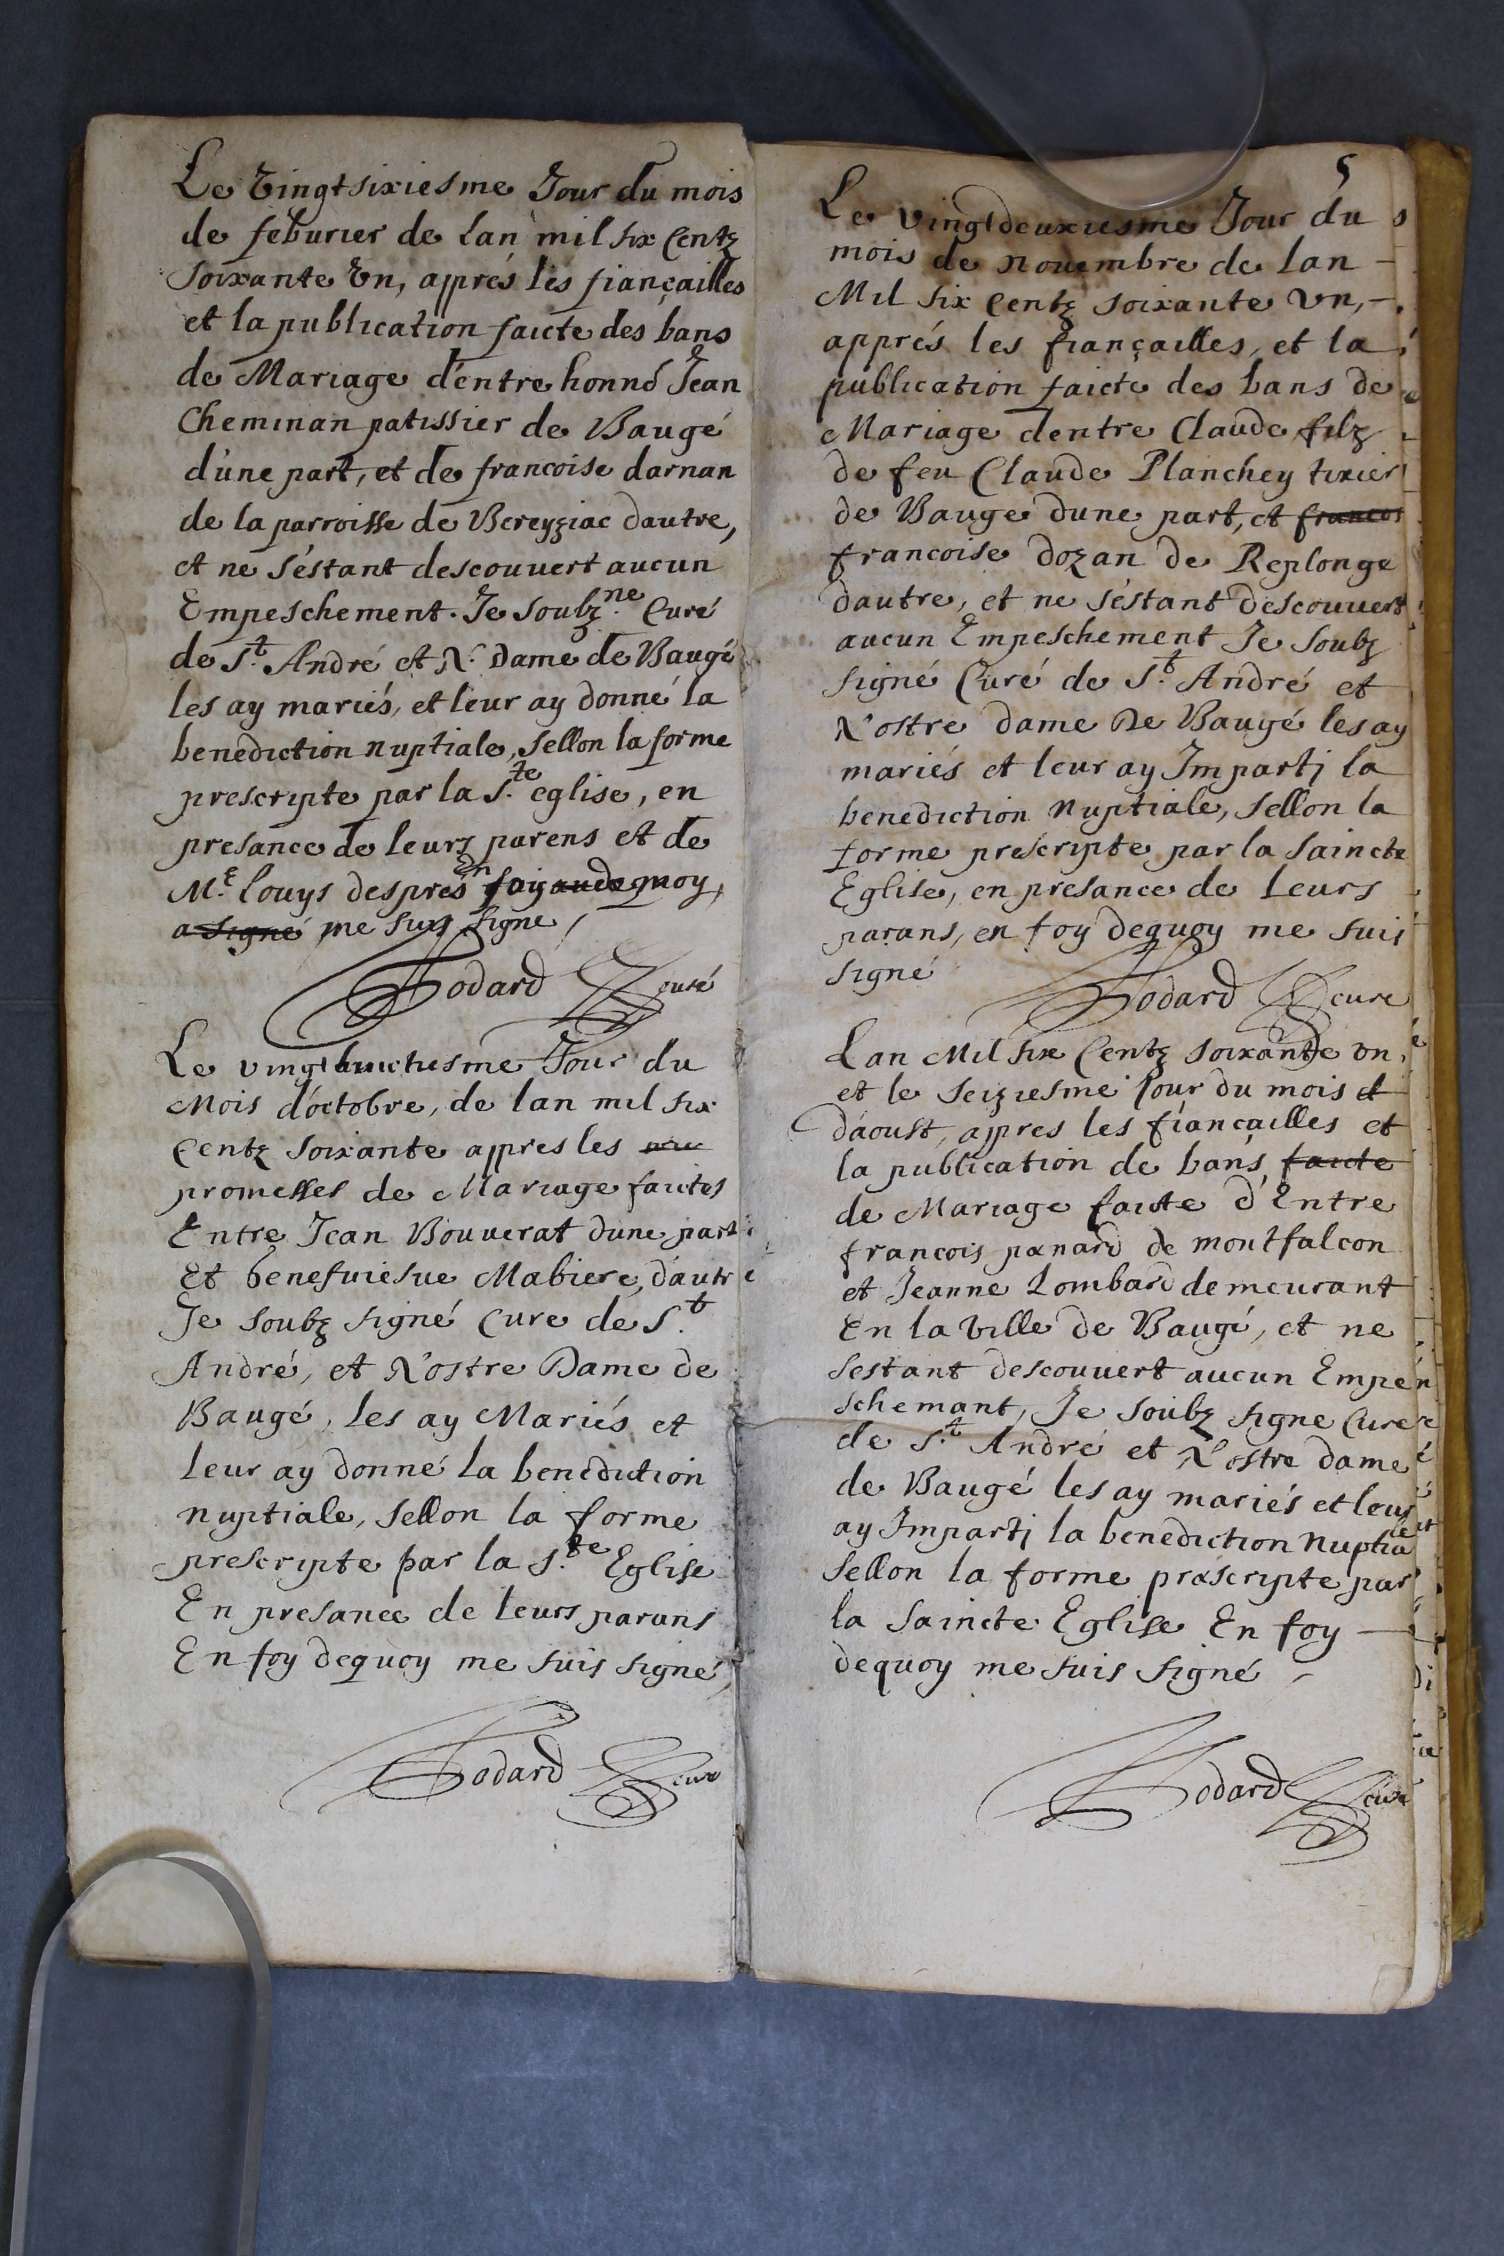 Le Vingtsixiesme Jour du mois
de feburier de lan mil six Centz
soixante Vn, apprés les fiançailles
et la publication faicte des bans
de Mariage d'entre honné Jean
Cheminan patissier de Baugé
d'une part, et de francoise darnan
de la parroisse de Bereyziac dautre,
et ne s'éstant descouvert aucun
Empeschement. Je soubz.ne Curé
de S.t André et N. Dame de Baugé
les ay mariés, et leur ay donné la
benediction nuptiale, sellon la forme
prescripte par la S.te eglise, en
presance de leurs parens et de
M.e louys després En foy de quoy,
a signé me suis signé
Godard curé
Le vingt huictiesme Jour du
Mois d'octobre, de lan mil six
Centz soixante appres les
promesses de Mariage faictes
Entre Jean Bouverat dune part
Et Mabiere, dautre
Je soubz signé Cure de S.t
André, et Nostre Dame de
Baugé, les ay Mariés et
leur ay donné la benediction
nuptiale, sellon la forme
prescripte par la S.te Eglise
En presance de leurs parans
En foy dequoy me suis signé
Godard cure
5
Le vingtdeuxiesme Jour du
mois de novembre de lan
Mil six Centz soixante vn,
apprés les fiançailles, et la
publication faicte des bans de
Mariage dentre Claude filz
de feu Claude Planchey tixier
de Baugé dune part, et francois
francoise dozan de Replonge
dautre, et ne s'éstant descouvert
aucun Empeschement Je soubz
signé Curé de S.t André et
Nostre dame De Baugé les ay
mariés et leur ay Impartj la
benediction nuptiale, sellon la
forme prescripte par la saincte
Eglise, en presance de leurs
parans, en foy dequoy me suis
signé
Godard cure
Lan Mil six Centz soixante vn,
et le seiziesme Jour du mois d
d'aoust, appres les fiançailles et
la publication de bans faicte
de Mariage faicte d'Entre
francois panard de montfalcon
et Jeanne Lombard demeurant
En la Ville de Baugé, et ne
sestant descouvert aucun Empé
schemant, Je soubz signe Cure
de S.t André et Nostre dame
de Baugé les ay mariés et leur
ay Impartj la benediction Nuptiale
sellon la forme prescripte par
la Saincte Eglise En foy
dequoy me suis signé
Godard curé